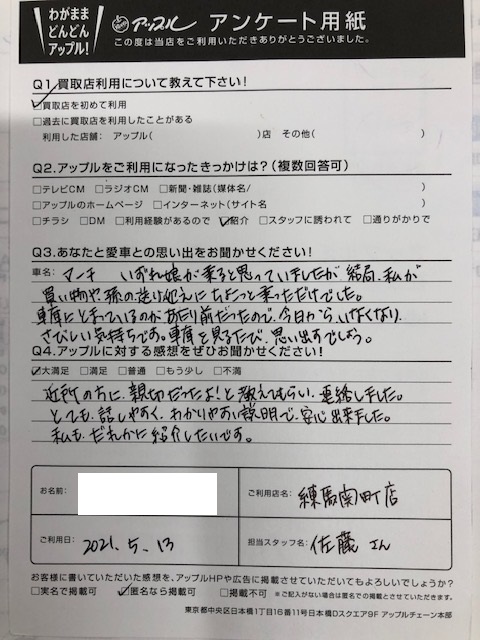 わがまま
どんどん
アップル!
アップル アンケート用紙
この度は当店をご利用いただきありがとうございました。
Q1.買取店利用について教えて下さい!
☑買取店を初めて利用
□過去に買取店を利用したことがある
利用した店舗： アップル( )店 その他( )
Q2.アップルをご利用になったきっかけは?(複数回答可)
□テレビCM □ラジオCM □新聞・雑誌(媒体名/ )
□アップルのホームページ □インターネット(サイト名 )
□チラシ □DM □利用経験があるので ☑紹介 □スタッフに誘われて □通りがかりで
Q3.あなたと愛車との思い出をお聞かせください!
車名： マーチ いずれ娘が乗ると思っていましたが 結局、私が
買い物や孫の送り迎えにちょこっと乗っただけでした。
車庫にとまっているのがあたり前だったので、今日からいなくなり、
さびしい気持ちです。車庫を見るたび、思い出すでしょう。
Q4.アップルに対する感想をぜひお聞かせください!
☑大満足 □満足 □普通 □もう少し □不満
近所の方に、親切だったよ!と教えてもらい、連絡しました。
とても、話しやすく、わかりやすい説明で、安心出来ました。
私も、だれかに紹介したいです。
お名前：
ご利用店名： 練馬関町店
ご利用日： 2021.5.13
担当スタッフ名： 佐藤 さん
お客様に書いていただいた感想を、アップルHPや広告に掲載させていただいてもよろしいでしょうか?
□実名で掲載可 ☑匿名なら掲載可 □掲載不可 ※ご記入がない場合は匿名での掲載とさせていただきます。
東京都中央区日本橋1丁目16番11号日本橋Dスクエア9F アップルチェーン本部